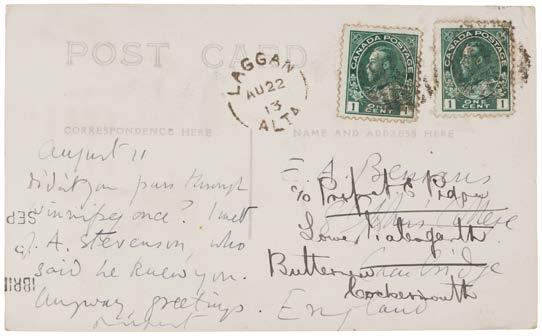 POST CARD
CANADA POSTAGE
1 CENT 1
CANADA POSTAGE
1 ONE CENT 1
LAGGAN
AU 22
13
ALTA
CORRESPONDENCE HERE
NAME AND ADDRESS HERE
August 11
Didn't you pass through
Winnipeg once? I met
J. A. Stevenson, who
said he knew you.
Anyway, greetings.
Rupert
SEP
E. A. Benians
c/o
St John's College
Lower
Buttermere
Cambridge
Cockermouth
England